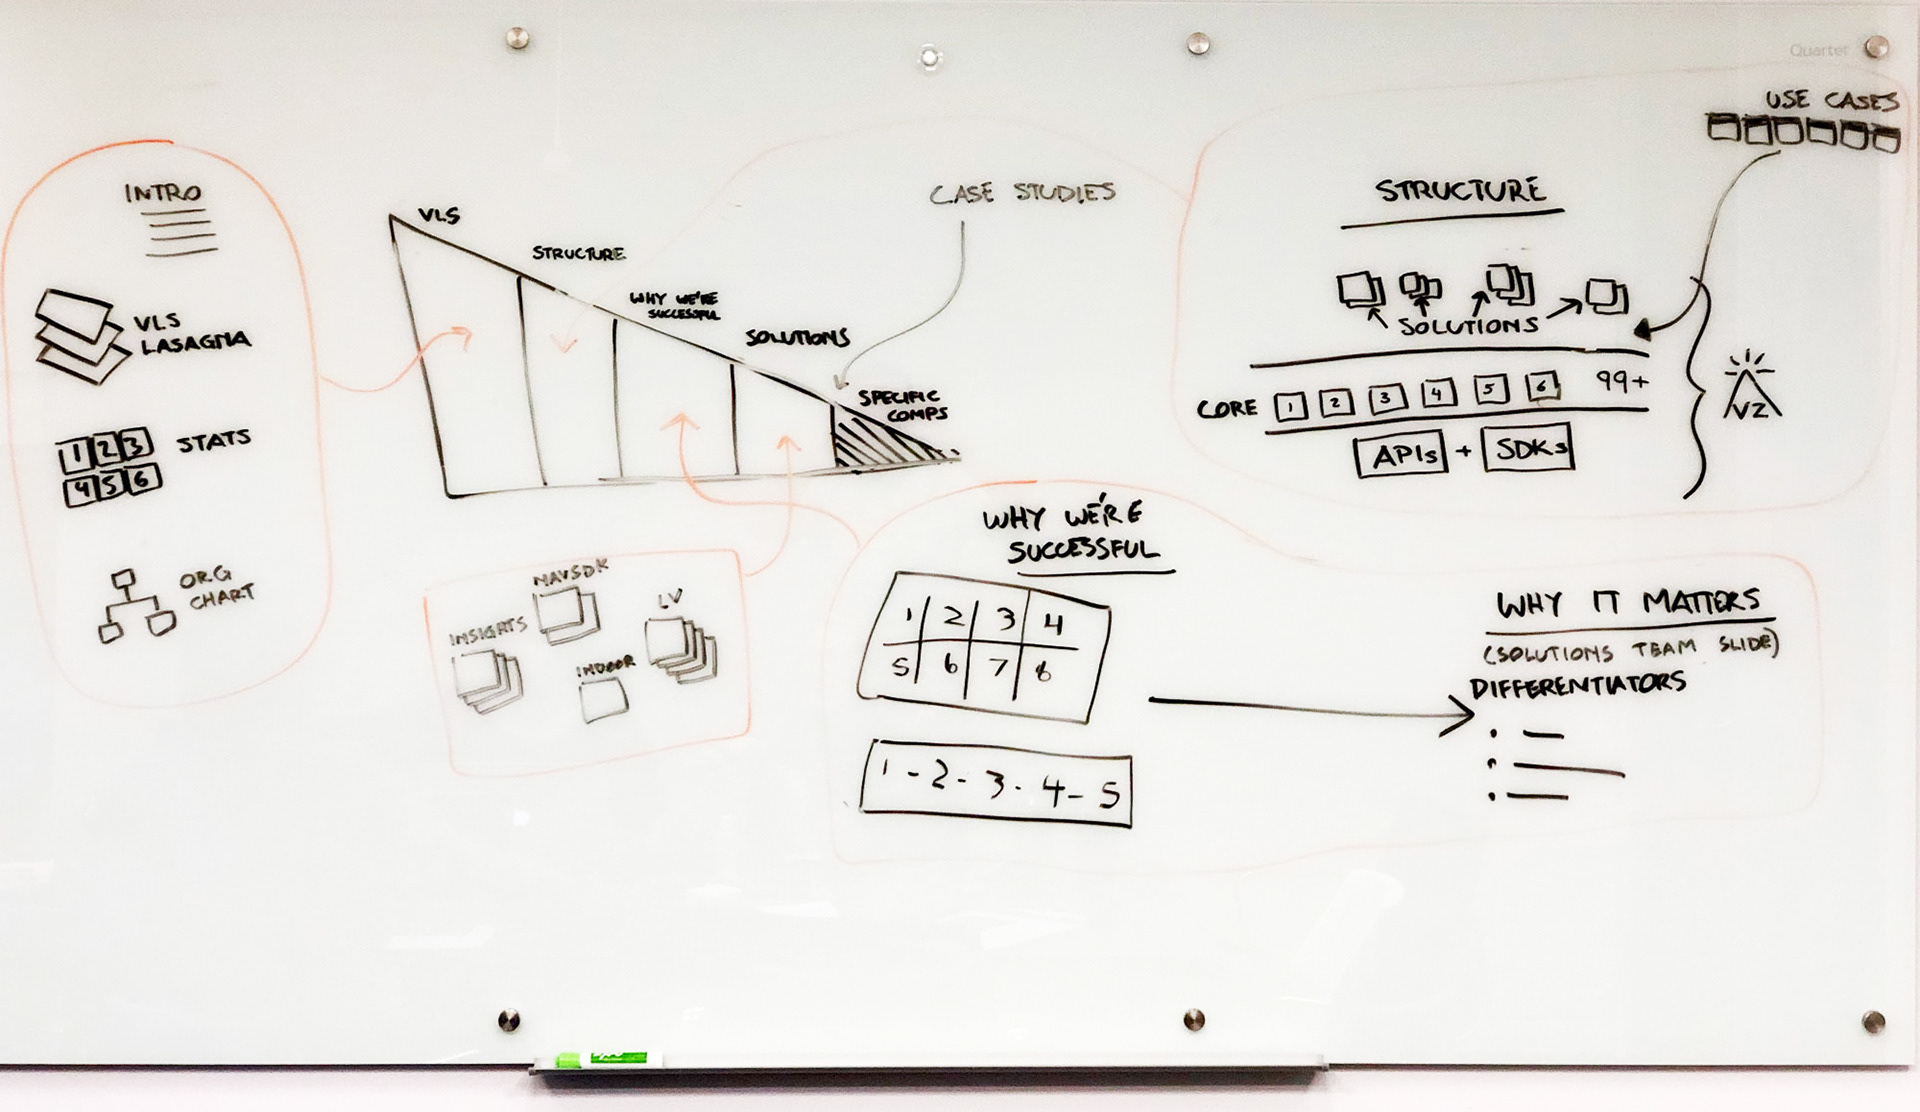 Quartet
USE CASES
INTRO
VLS
LASAGNA
1 2 3
4 5 6
STATS
ORG
CHART
VLS
STRUCTURE
WHY WE'RE
SUCCESSFUL
SOLUTIONS
SPECIFIC
COMPS
CASE STUDIES
STRUCTURE
SOLUTIONS
CORE 1 2 3 4 5 6 99+
APIs + SDKs
V2
NAVSDK
INSIGHTS
LV
INDOOR
WHY WE'RE
SUCCESSFUL
1 2 3 4
5 6 7 8
1 - 2 - 3 - 4 - 5
WHY IT MATTERS
(SOLUTIONS TEAM SLIDE)
DIFFERENTIATORS